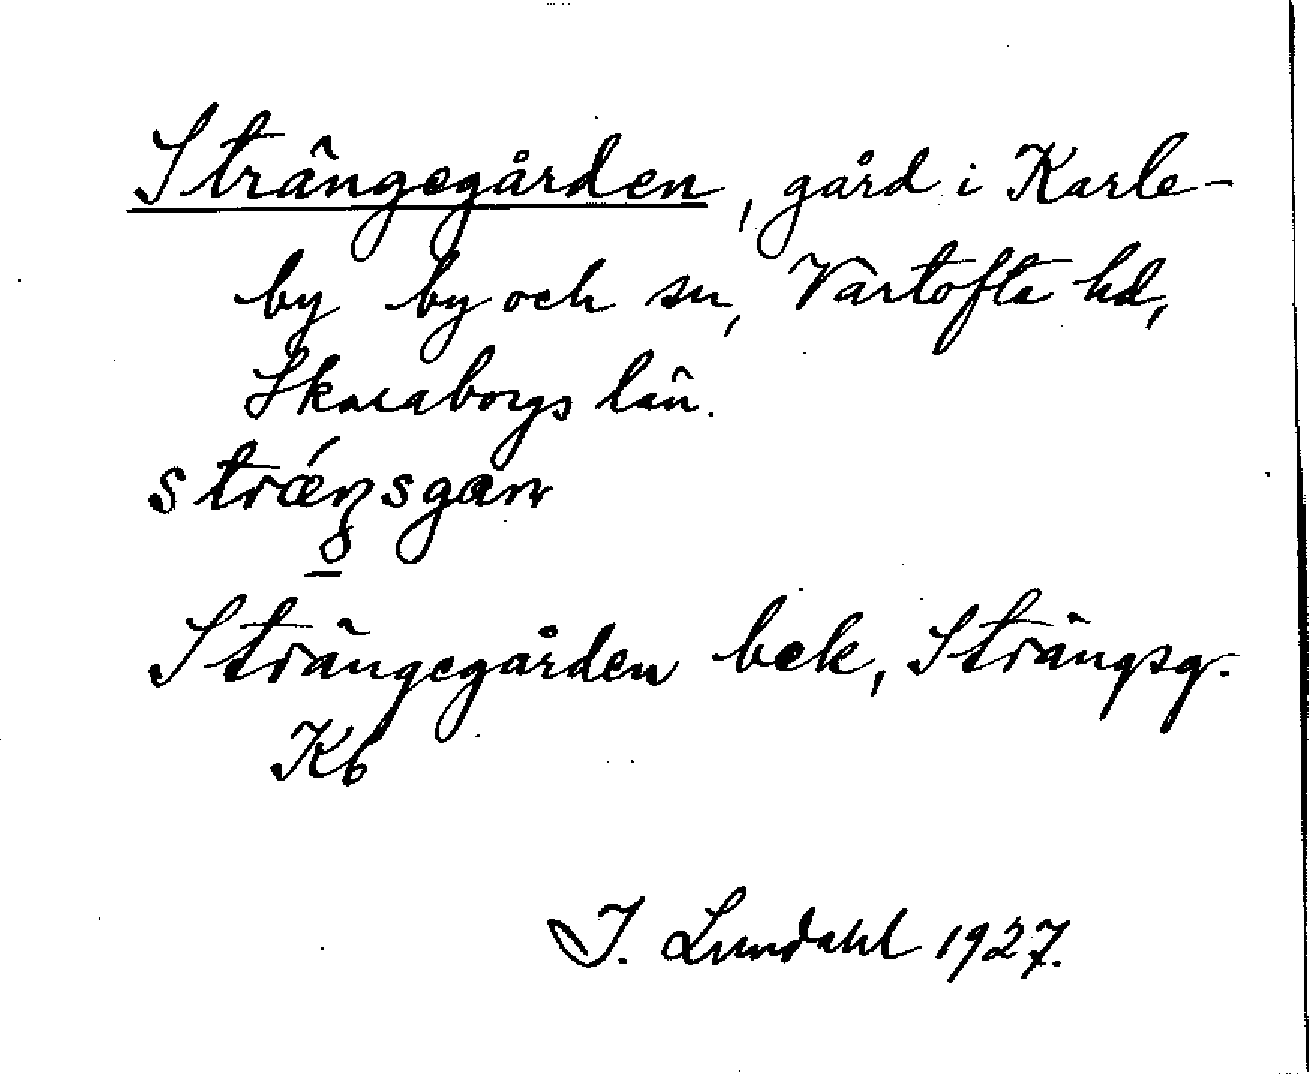 Strängegården, gård i Karle-
by by och sn, Vartofta hd,
Skaraborgs län.
strǽŋsgan
Strängegården bek, Strängsg.
Kb
I. Lundahl 1927.